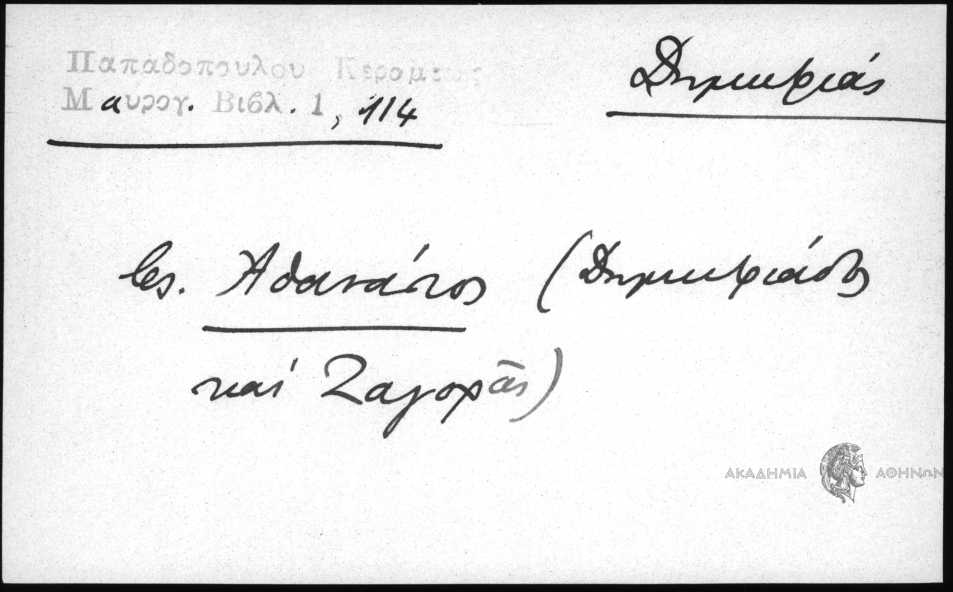 Παπαδοπούλου Κεραμεως
Μαυρογ. Βιβλ. 1, 114
Δημητριάς
Ἀθανάσιος (Δημητριάδος
καί Ζαγορᾶς)
ΑΚΑΔΗΜΙΑ ΑΘΗΝΩΝ